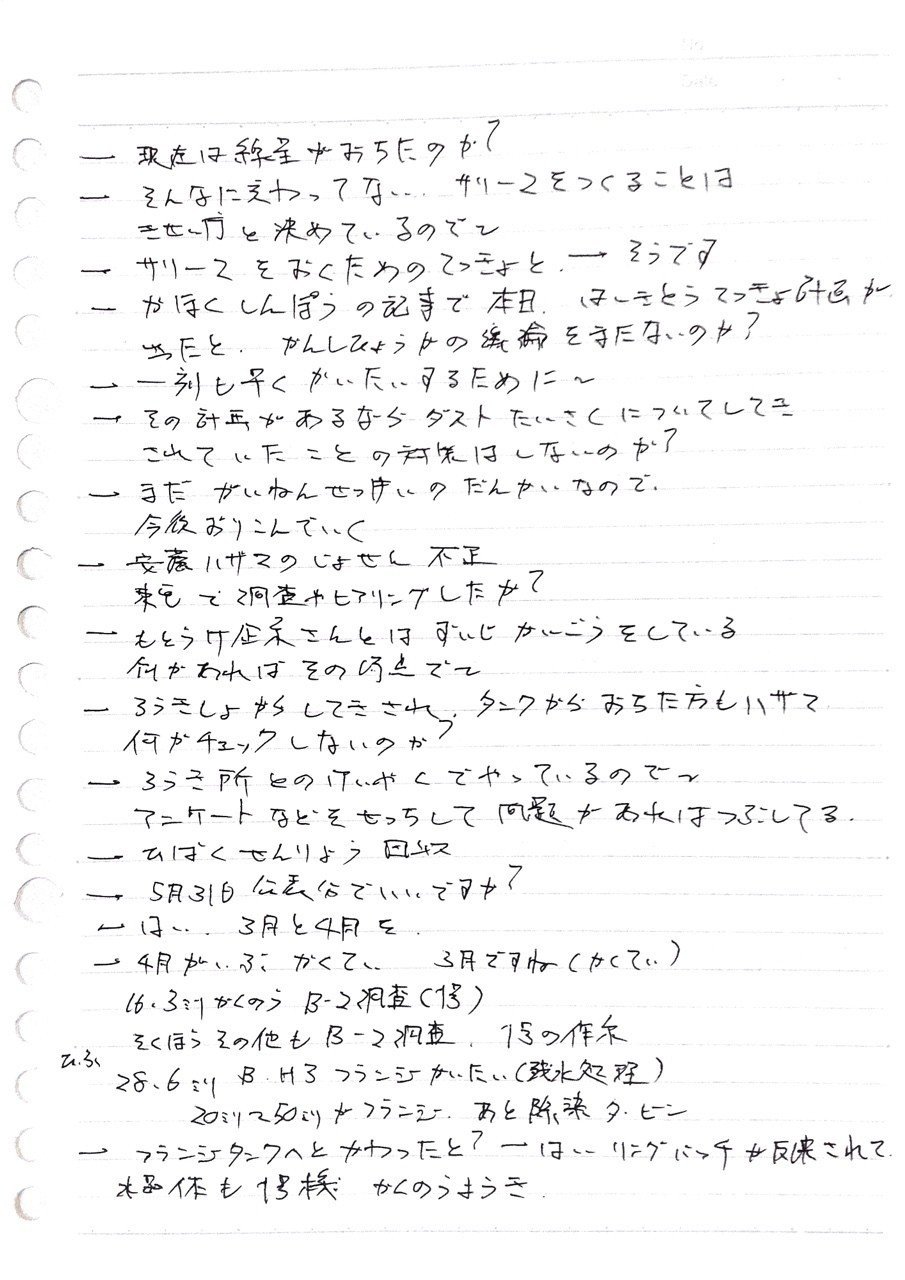 ― 現在は線量がおちたのか?
― そんなに変わってない.. サリースをつくることは
きせい庁と決めているので~
― サリースをおくためのてっきょと. → そうです
― かほくしんぽうの記事で本日. はいきとうてっきょ計画が
出たと. かんしひょうかの議論をまたないのか?
→ 一刻も早くかいたいするために~
→ その計画があるならダストたいさくについてしてき
されていたことの対策はしないのか?
→ まだがいねんせっけいのだんかいなので.
今後おりこんでいく
→ 安藤ハザマのじょせん不正
東電で調査やヒアリングしたか?
― もとうけ企業さんとはずいじかいごうをしている
何かあればその時点で~
― ろうきしょからしてきされ. タンクからおちた方もハザマ
何かチェックしないのか?
→ ろうき所とのけいやくでやっているので~
アンケートなどをせっちして問題があればつぶしてる.
― ひばくせんりょう 回収
→ 5月31日公表分でいいですか?
← はい. 3月と4月を.
→ 4月がいぶかくてい 3月ですね(かくてい)
16.3ミリかくのう B-2調査(1号)
そくほうその他もB-2調査. 1号の作業
ひふ
28.6ミリ B.H3 フランジかいたい(残水処理)
20ミリ~50ミリがフランジ. あと除染タービン
→ フランジタンクへとかわったと? ― はい リングバッチが反映されて
水晶体も1号機 かくのうようき.